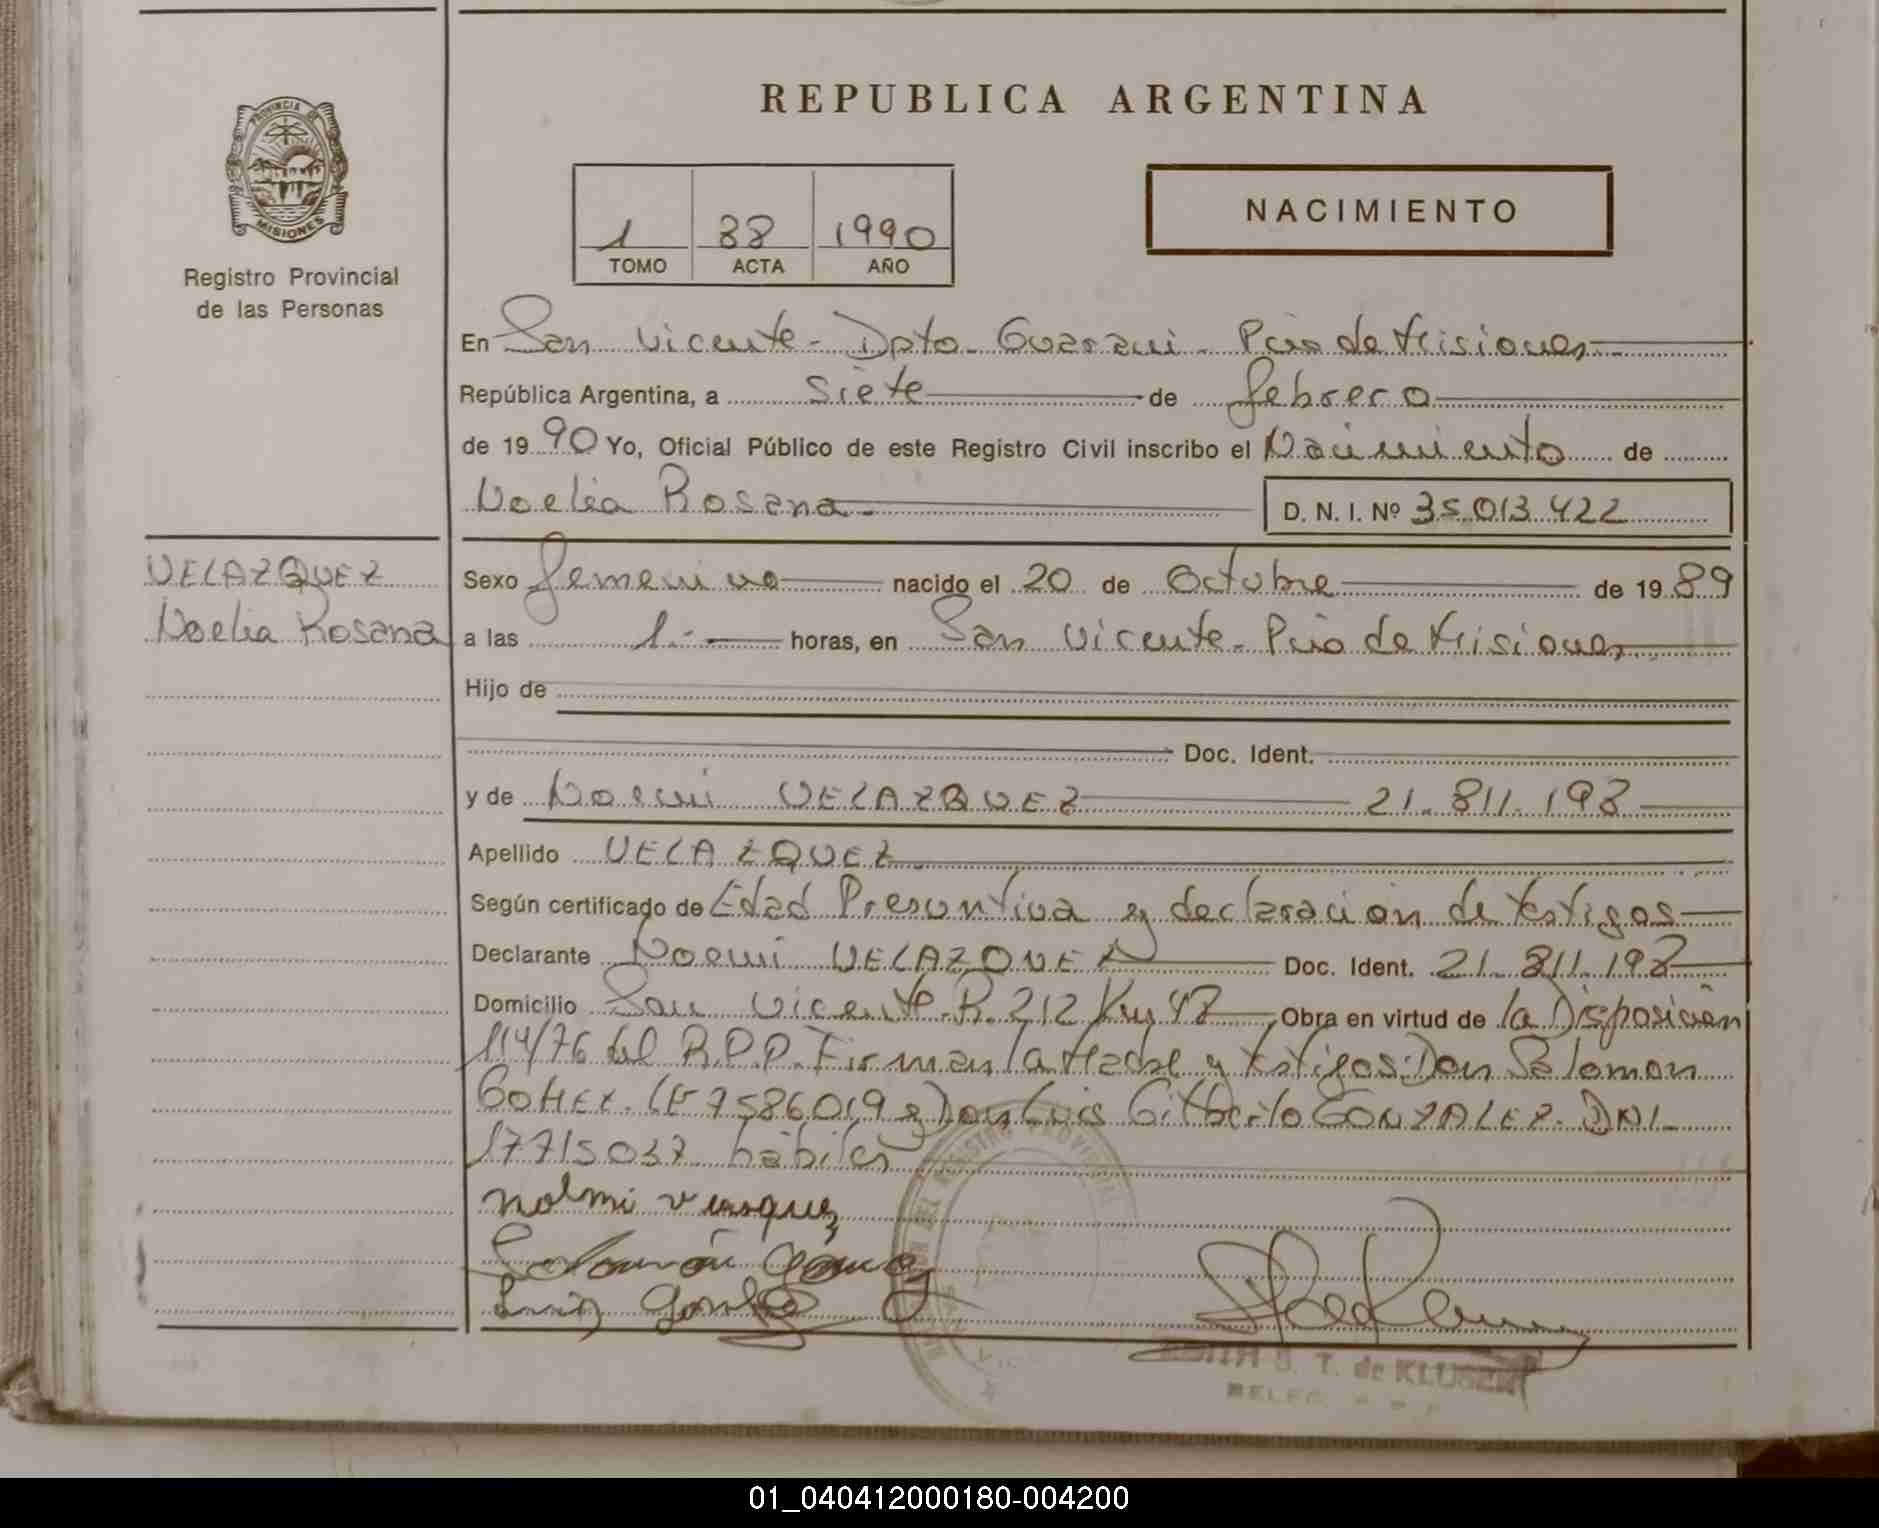 REPUBLICA ARGENTINA
PROVINCIA DE
MISIONES
Registro Provincial
de las Personas
1 38 1990
TOMO ACTA AÑO
NACIMIENTO
En San Vicente - Dpto - Guarani - Pcia de Misiones
República Argentina, a siete de febrero
de 1990 Yo, Oficial Público de este Registro Civil inscribo el Nacimiento de
Noelia Rosana
D. N. I. Nº 35.013.422
VELAZQUEZ
Noelia Rosana
Sexo femenino nacido el 20 de Octubre de 1989
a las 1.- horas, en San Vicente - Pcia de Misiones
Hijo de
Doc. Ident.
y de Noemi VELAZQUEZ 21.811.198
Apellido VELAZQUEZ
Según certificado de Edad Presuntiva y declaración de testigos
Declarante Noemi VELAZQUEZ Doc. Ident. 21.811.198
Domicilio San Vicente - R. 212 Km 48 Obra en virtud de la Disposición
114/76 del R.P.P. Firman la Madre y testigos: Don Salomon
GOMEZ. LE 7586019 y Don Luis Gilberto GONZALEZ. DNI
17715037 hábiles
Salomón Gomez
Luis
T. de KLUSENER